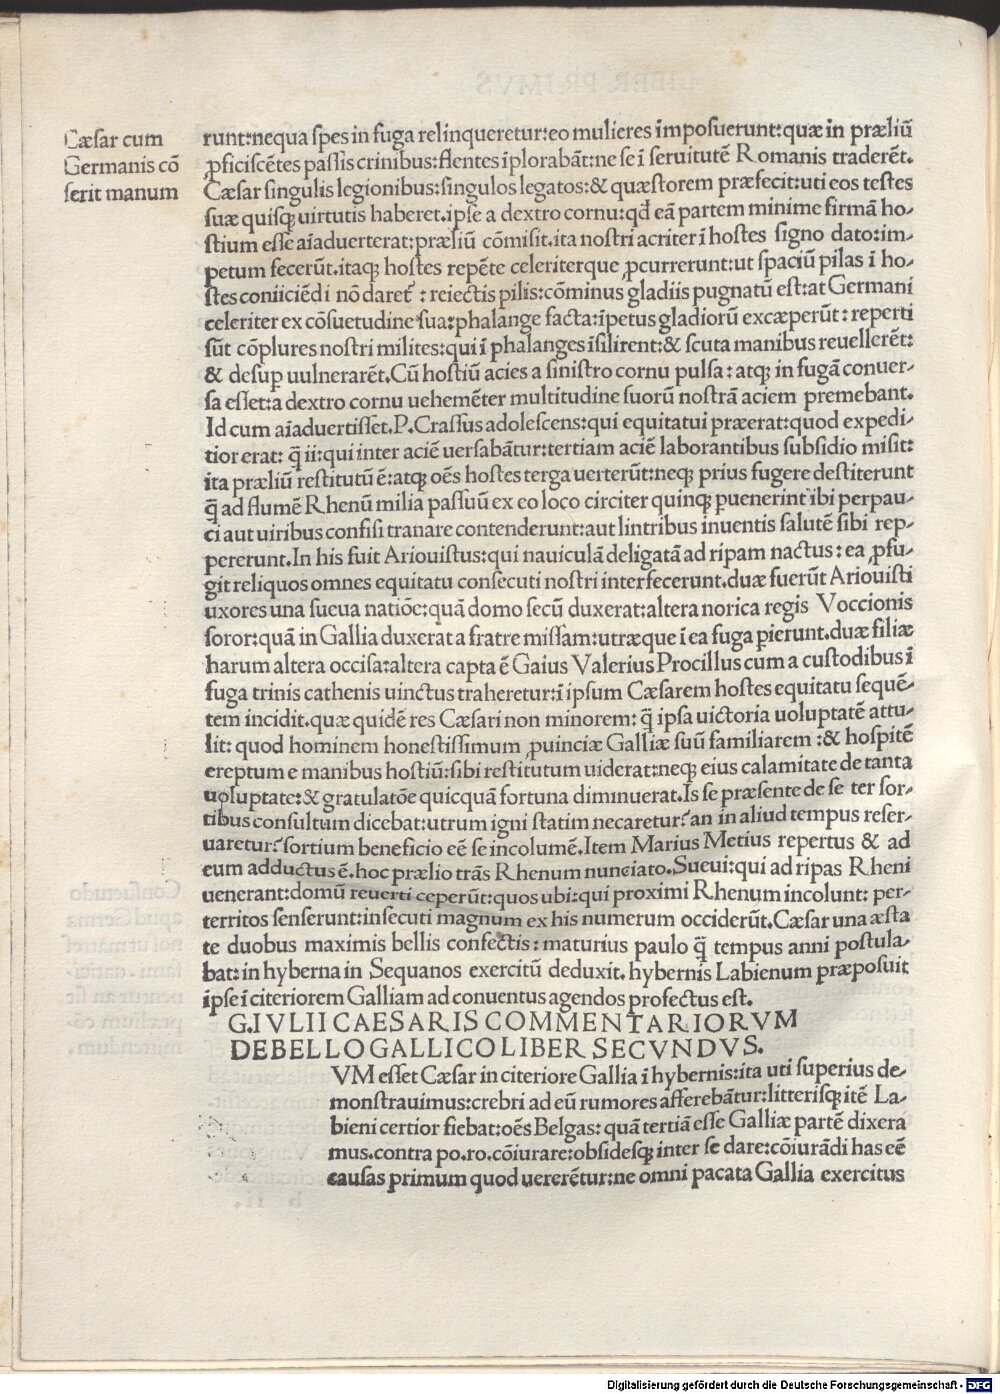 Cæsar cum
Germanis cō
serit manum
runt:nequa spes in fuga relinqueretur:eo mulieres imposuerunt:quæ in præliū
ꝓficiscētes passis crinibus:flentes īplorabāt:ne se ī seruitutē Romanis traderēt.
Cæsar singulis legionibus:singulos legatos:& quæstorem præfecit:uti eos testes
suæ quisqꝫ uirtutis haberet.ipse a dextro cornu:qđ eā partem minime firmā ho-
stium esse aīaduerterat:præliū cōmisit.ita nostri acriter ī hostes signo dato:im-
petum fecerūt.itaqꝫ hostes repēte celeriterque ꝓcurrerunt:ut spaciū pilas ī ho-
stes coniiciēdi nō daret᷑:reiectis pilis:cōminus gladiis pugnatū est:at Germani
celeriter ex cōsuetudine sua:phalange facta:īpetus gladiorū excæperūt:reperti
sūt cōplures nostri milites:qui ī phalanges īsilirent:& scuta manibus reuellerēt:
& desuꝑ uulnerarēt.Cū hostiū acies a sinistro cornu pulsa:atqꝫ in fugā conuer-
sa esset:a dextro cornu uehemēter multitudine suorū nostrā aciem premebant.
Id cum aīaduertisset.P.Crassus adolescens:qui equitatui præerat:quod expedi-
tior erat:q̄ ii:qui inter aciē uersabātur:tertiam aciē laborantibus subsidio misit:
ita præliū restitutū ē:atqꝫ oēs hostes terga uerterūt:neqꝫ prius fugere destiterunt
q̄ ad flumē Rhenū milia passuū ex eo loco circiter quinqꝫ ꝑuenerint ibi perpau-
ci aut uiribus confisi tranare contenderunt:aut lintribus inuentis salutē sibi rep-
pererunt.In his fuit Ariouistus:qui nauiculā deligatā ad ripam nactus:ea ꝓfu-
git reliquos omnes equitatu consecuti nostri interfecerunt.duæ fuerūt Ariouisti
uxores una sueua natiōe:quā domo secū duxerat:altera norica regis Voccionis
soror:quā in Gallia duxerat a fratre missam:utræque ī ea fuga ꝑierunt.duæ filiæ
harum altera occisa:altera capta ē Gaius Valerius Procillus cum a custodibus ī
fuga trinis cathenis uinctus traheretur:ī ipsum Cæsarem hostes equitatu sequē-
tem incidit.quæ quidē res Cæsari non minorem:q̄ ipsa uictoria uoluptatē attu-
lit:quod hominem honestissimum ꝓuinciæ Galliæ suū familiarem:& hospitē
ereptum e manibus hostiū:sibi restitutum uiderat:neqꝫ eius calamitate de tanta
uoluptate:& gratulatōe quicquā fortuna diminuerat.Is se præsente de se ter sor-
tibus consultum dicebat:utrum igni statim necaretur?an in aliud tempus reser-
uaretur?sortium beneficio eē se incolumē.Item Marius Metius repertus & ad
eum adductus ē.hoc prælio trās Rhenum nunciato.Sueui:qui ad ripas Rheni
uenerant:domū reuerti ceperūt:quos ubi:qui proximi Rhenum incolunt:per-
territos senserunt:insecuti magnum ex his numerum occiderūt.Cæsar una æsta
te duobus maximis bellis confectis:maturius paulo q̄ tempus anni postula-
bat:in hyberna in Sequanos exercitū deduxit.hybernis Labienum præposuit
ipse ī citeriorem Galliam ad conuentus agendos profectus est.
G.IVLII CAESARIS COMMENTARIORVM
DE BELLO GALLICO LIBER SECVNDVS.
VM esset Cæsar in citeriore Gallia ī hybernis:ita uti superius de-
monstrauimus:crebri ad eū rumores afferebātur:litterisqꝫ itē La-
bieni certior fiebat:oēs Belgas:quā tertiā esse Galliæ partē dixera
mus.contra po.ro.cōiurare:obsidesqꝫ inter se dare:cōiurādi has eē
causas primum quod uererētur:ne omni pacata Gallia exercitus
Digitalisierung gefördert durch die Deutsche Forschungsgemeinschaft - DFG